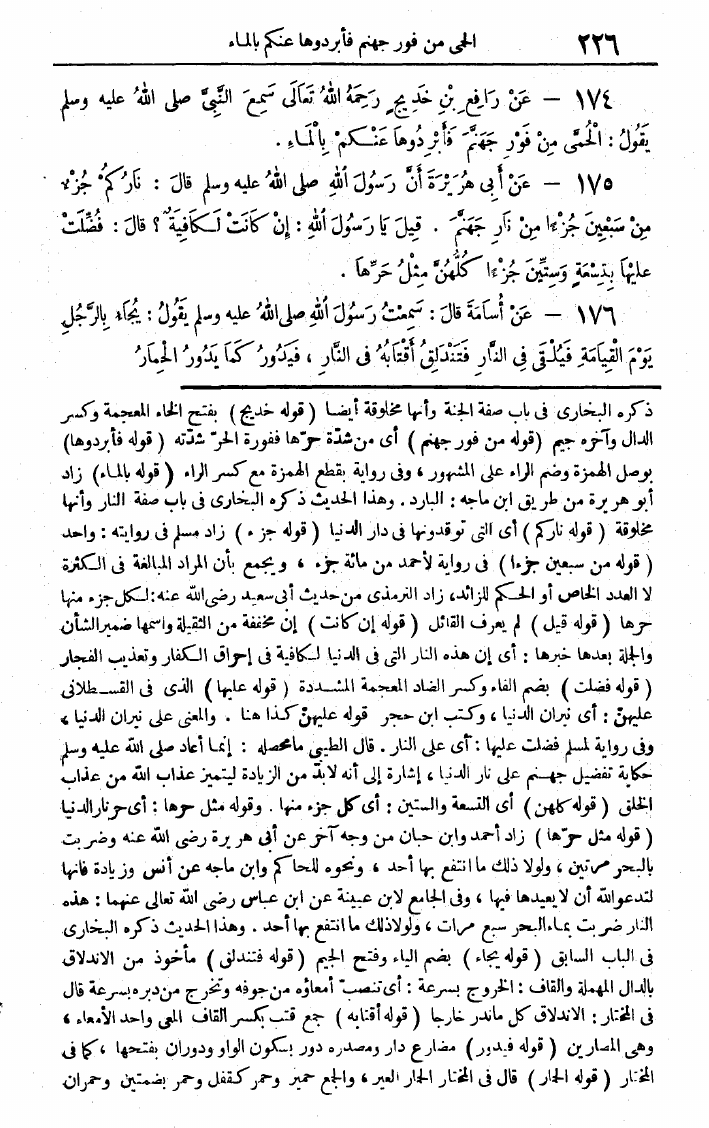 ٢٢٦ الحمى من فور جهنم فأبردوها عنكم بالماء
١٧٤ — عَنْ رَافِعِ بْنِ خَدِيجٍ رَحِمَهُ اللهُ تَعَالَى سَمِعَ النَّبِيَّ صلى اللهُ عليه وسلم
يَقُولُ : الْحُمَّى مِنْ فَوْرِ جَهَنَّمَ فَأَبْرِدُوهَا عَنْكُمْ بِالْمَاءِ .
١٧٥ — عَنْ أَبِى هُرَيْرَةَ أَنَّ رَسُولَ اللهِ صلى اللهُ عليه وسلم قالَ : نَارُكُمْ جُزْءٌ
مِنْ سَبْعِينَ جُزْءًا مِنْ نَارِ جَهَنَّمَ . قِيلَ يَا رَسُولَ اللهِ : إِنْ كَانَتْ لَكَافِيَةً ؟ قالَ : فُضِّلَتْ
عليْهَا بِتِسْعَةٍ وَسِتِّينَ جُزْءًا كُلُّهُنَّ مِثْلُ حَرِّهَا .
١٧٦ — عَنْ أُسَامَةَ قالَ : سَمِعْتُ رَسُولَ اللهِ صلى اللهُ عليه وسلم يَقُولُ : يُجَاءُ بِالرَّجُلِ
يَوْمَ الْقِيَامَةِ فَيُلْقَى فِى النَّارِ فَتَنْدَلِقُ أَقْتَابُهُ فى النَّارِ ، فَيَدُورُ كَمَا يَدُورُ الْحِمَارُ
ذكره البخارى فى باب صفة الجنة وأنها مخلوقة أيضا ( قوله خديج ) بفتح الخاء المعجمة وكسر
الدال وآخره جيم ( قوله من فور جهنم ) أى من شدّة حرّها ففورة الحرّ شدّته ( قوله فأبردوها )
بوصل الهمزة وضم الراء على المشهور ، وفى رواية بقطع الهمزة مع كسر الراء ( قوله بالماء ) زاد
أبو هريرة من طريق ابن ماجه : البارد . وهذا الحديث ذكره البخارى فى باب صفة النار وأنها
مخلوقة ( قوله ناركم ) أى التى توقدونها فى دار الدنيا ( قوله جزء ) زاد مسلم فى روايته : واحد
( قوله من سبعين جزءا ) فى رواية لأحمد من مائة جزء ، ويجمع بأن المراد المبالغة فى الكثرة
لا العدد الخاص أو الحكم للزائد، زاد الترمذى من حديث أبى سعيد رضى الله عنه : لكل جزء منها
حرها ( قوله قيل ) لم يعرف القائل ( قوله إن كانت ) إن مخففة من الثقيلة واسمها ضمير الشأن
والجملة بعدها خبرها : أى إن هذه النار التى فى الدنيا لكافية فى إحراق الكفار وتعذيب الفجار
( قوله فضلت ) بضم الفاء وكسر الضاد المعجمة المشددة ( قوله عليها ) الذى فى القسطلانى
عليهنّ : أى نيران الدنيا ، وكتب ابن حجر قوله عليهنّ كذا هنا . والمعنى على نيران الدنيا ،
وفى رواية لمسلم فضلت عليها : أى على النار . قال الطيبى ما محصله : إنما أعاد صلى الله عليه وسلم
حكاية تفضيل جهنم على نار الدنيا ، إشارة إلى أنه لابدّ من الزيادة ليتميز عذاب الله من عذاب
الخلق ( قوله كلهن ) أى التسعة والستين : أى كل جزء منها . وقوله مثل حرها : أى حر نار الدنيا
( قوله مثل حرّها ) زاد أحمد وابن حبان من وجه آخر عن أبى هريرة رضى الله عنه وضربت
بالبحر مرتين ، ولولا ذلك ما انتفع بها أحد ، ونحوه للحاكم وابن ماجه عن أنس وزيادة فانها
لتدعو الله أن لا يعيدها فيها ، وفى الجامع لابن عيينة عن ابن عباس رضى الله تعالى عنهما : هذه
النار ضربت بماء البحر سبع مرات ، ولولا ذلك ما انتفع بها أحد . وهذا الحديث ذكره البخارى
فى الباب السابق ( قوله يجاء ) بضم الياء وفتح الجيم ( قوله فتندلق ) مأخوذ من الاندلاق
بالدال المهملة والقاف : الخروج بسرعة : أى تنصبّ أمعاؤه من جوفه وتخرج من دبره بسرعة قال
فى المختار : الاندلاق كل ماندر خارجا ( قوله أقتابه ) جمع قتب بكسر القاف المعى واحد الأمعاء ،
وهى المصارين ( قوله فيدور ) مضارع دار ومصدره دور بسكون الواو ودوران بفتحها ، كما فى
المختار ( قوله الحمار ) قال فى المختار الحمار العير ، والجمع حمير وحمر كقفل وحمر بضمتين وحمران